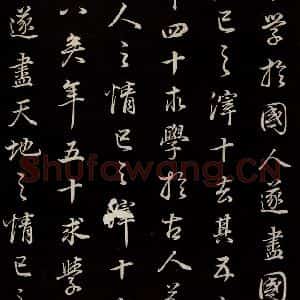 學於國人遂盡國
已之滓十去其五
四十求學於古人
人之情已之滓十
八矣年五十求學
遂盡天地之情已之
Shufawang.CN